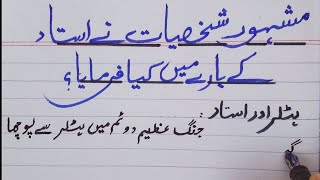 مشہور شخصیات نے استاد
کے بارے میں کیا فرمایا؟
ہٹلر اور استاد :
جنگ عظیم دوئم میں ہٹلر سے پوچھا
گ